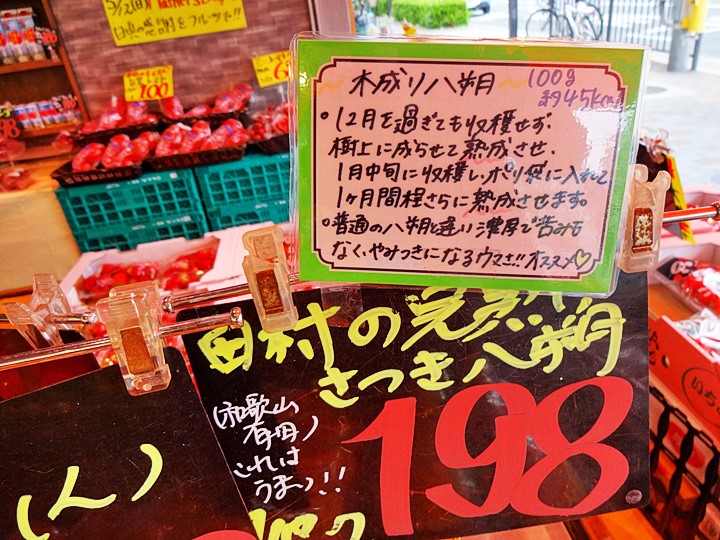 木成り八朔 100g
約45kcal
。12月を過ぎても収穫せず、
樹上に成らせて熟成させ、
1月中旬に収穫し、ポリ袋に入れて
1ヶ月間程さらに熟成させます。
。普通の八朔と違い濃厚で苦みも
なく、やみつきになるウマさ!!オススメ♡
田村の完熟
さつき八朔
(和歌山
有田)
これは
うまっ!!
198
ん)
100